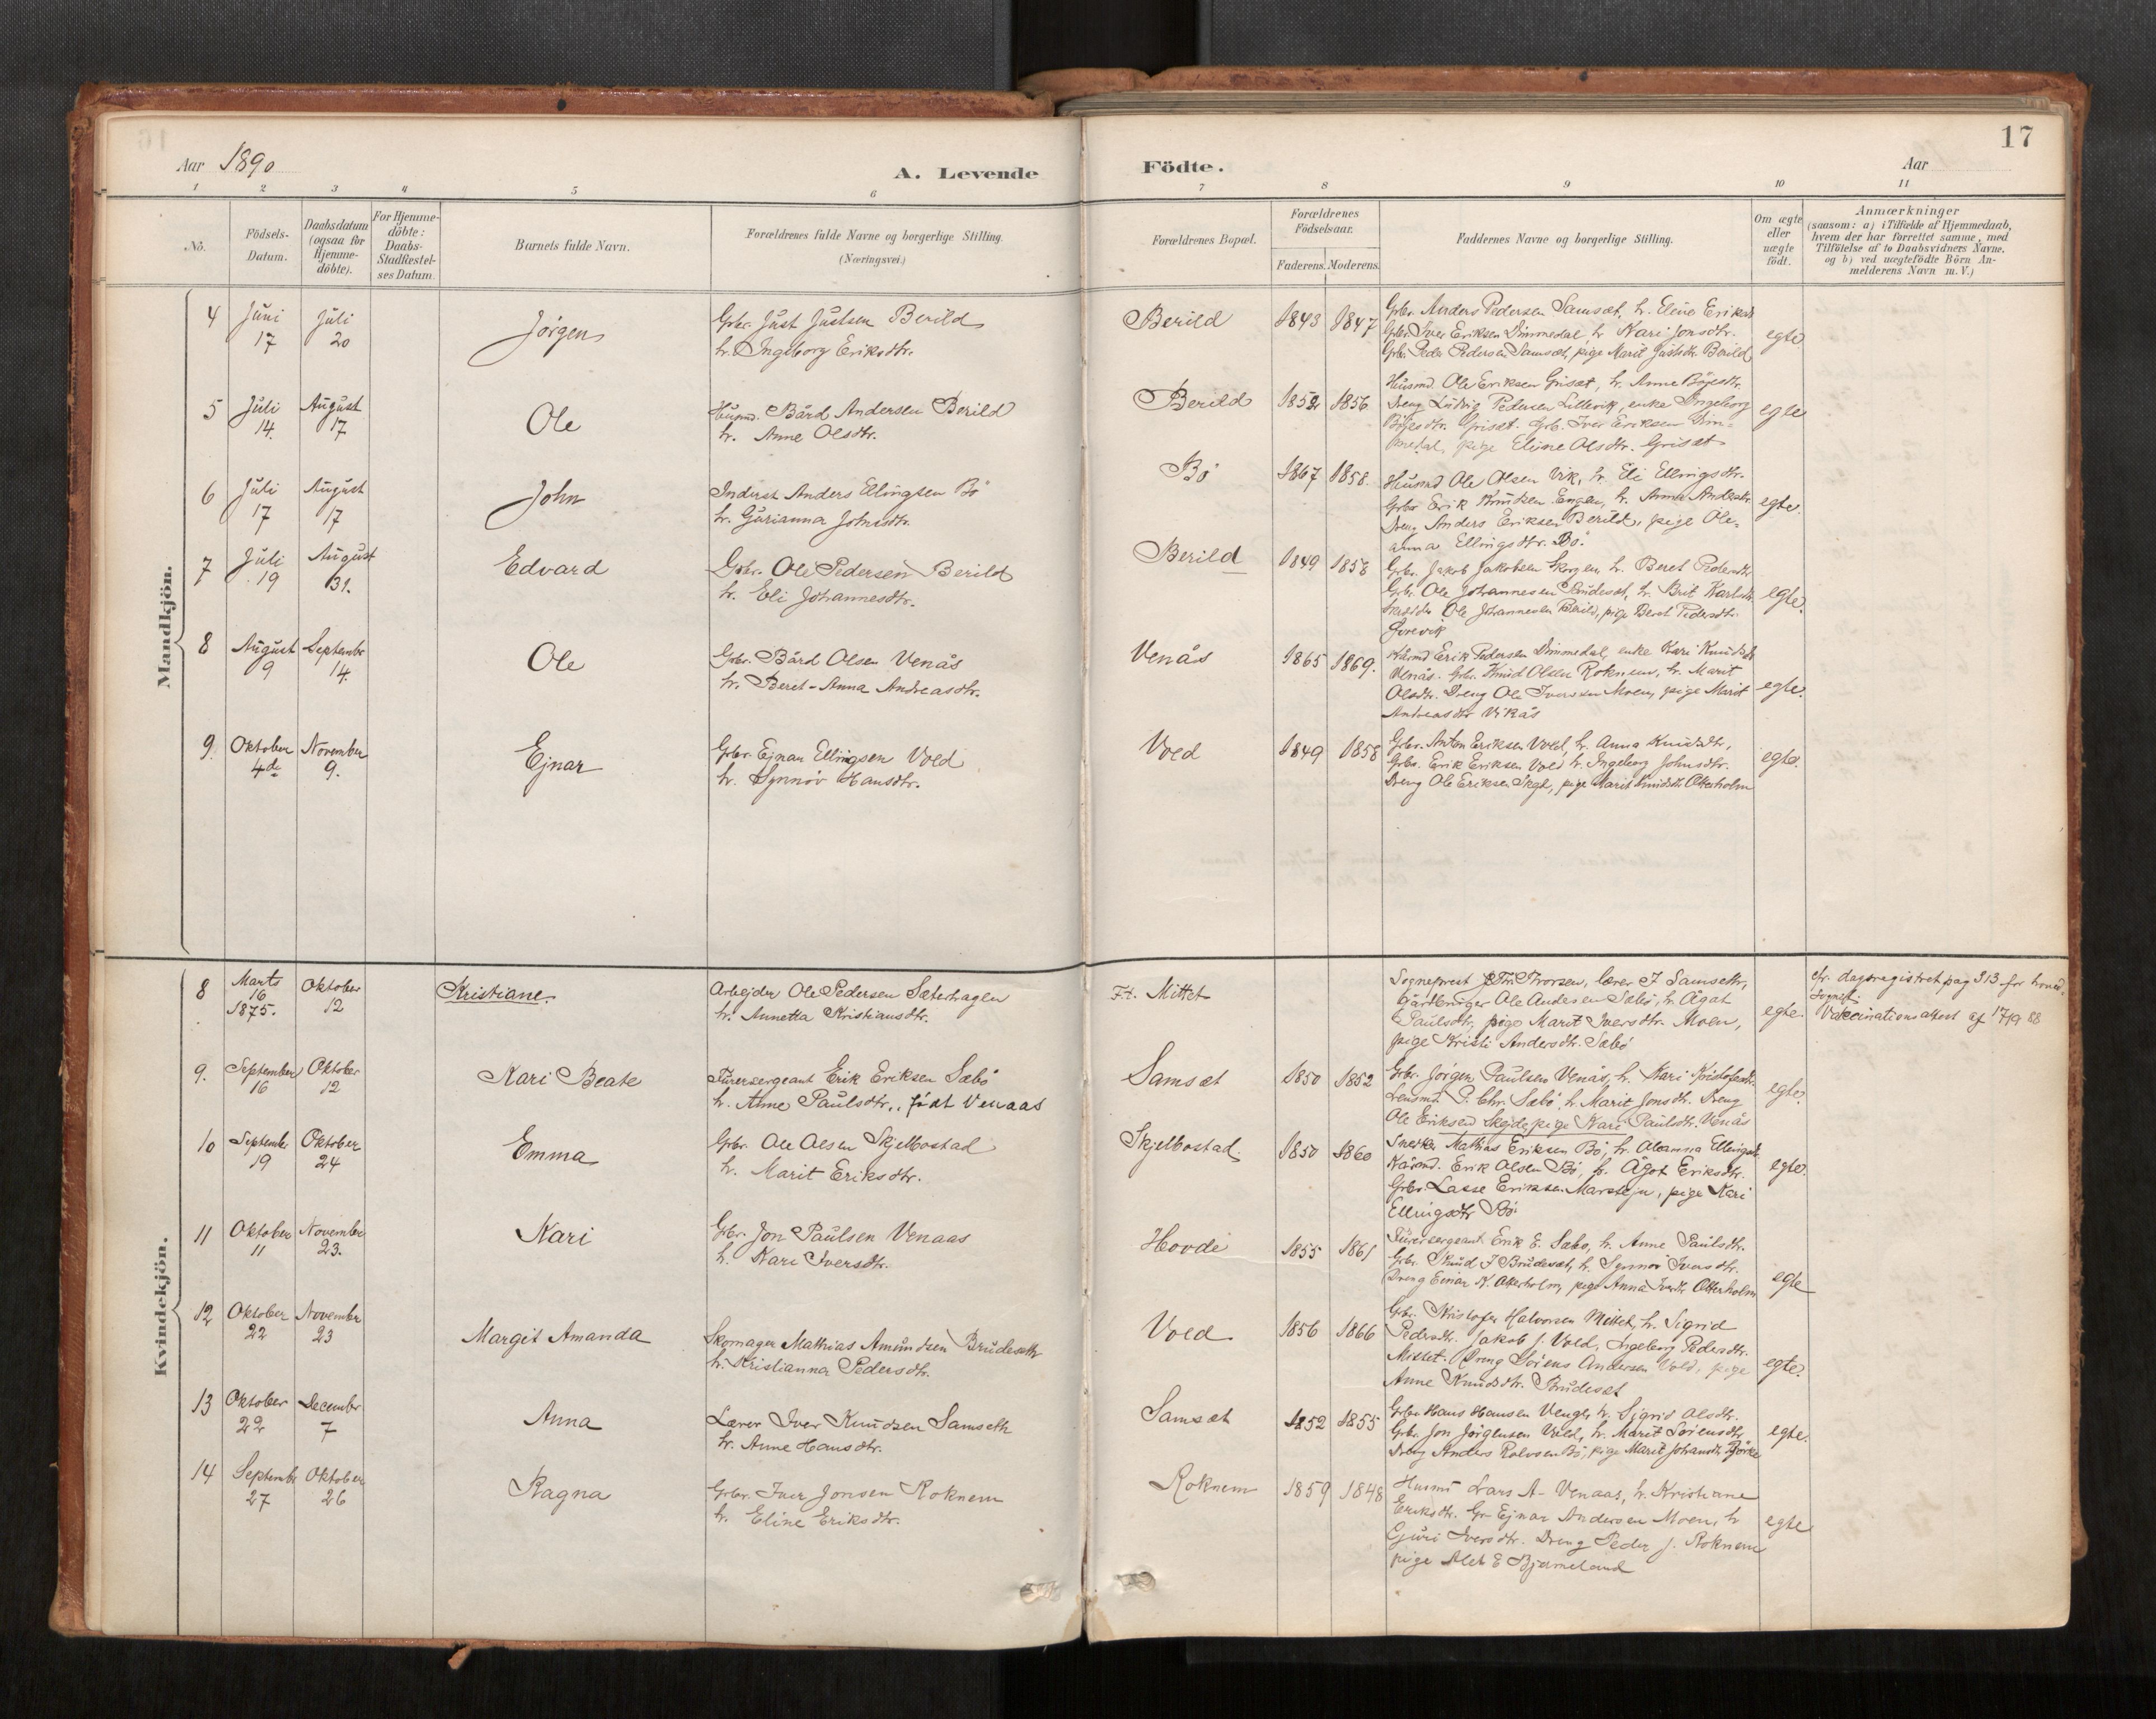 17
Aar 1890
A. Levende
Födte.
Aar
1 2 3 4 5 6 7 8 9 10 11
No.
Födsels-
Datum.
Daabsdatum
(ogsaa for
Hjemme-
döbte).
For Hjemme-
döbte:
Daabs-
Stadfæstel-
ses Datum.
Barnets fulde Navn.
Forældrenes fulde Navne og borgerlige Stilling.
(Næringsvei.)
Forældrenes Bopæl.
Forældrenes
Födselsaar.
Faderens. Moderens.
Faddernes Navne og borgerlige Stilling.
Om ægte
eller
uægte
födt.
Anmærkninger
(saasom: a) i Tilfælde af Hjemmedaab,
hvem der har forrettet samme, med
Tilföielse af to Daabsvidners Navne.
og b) ved uægtefödte Börn An-
melderens Navn m. V.)
Mandkjön.
4 Juni 17 Juli 20 Jörgen
Gbr. Just Justsen Berild
h. Ingeborg Eriksdtr.
Berild 1843 1847
Gbr. Anders Pedersen Samsæt, h. Eline Eriksd.
Gbr. Iver Eriksen Dimmedal, h. Kari Jonsdtr.
Gbr. Peder Pedersen Samsæt, pige Marit Justsdtr. Berild
egte.
5 Juli 14. August 17 Ole
Husmd. Bård Andersen Berild
h. Anne Olsdtr.
Berild 1852 1856
Husmd. Ole Eriksen Grisæt, h. Anne Böjesdtr.
Dreng Ludvig Pedersen Lillevik, enke Ingeborg
Böjesdtr. Grisæt. Gbr. Iver Eriksen Dim-
medal, pige Eline Olsdtr. Grisæt
egte
6 Juli 17 August 17 John
Inderst Anders Ellingsen Bö
h. Gurianna Johnsdtr.
Bö 1867 1858.
Husmd Ole Olsen Vik, h. Eli Ellingsdtr.
Gbr Erik Knudsen Engen, h. Anna Andersdtr.
Dreng Anders Eriksen Berild, pige Ole-
anna Ellingsdtr. Bö.
egte.
7 Juli 19 August 31. Edvard
Gbr. Ole Pedersen Berild
h. Eli Johannesdtr.
Berild 1849 1858
Gbr. Jakob Jakobsen Skorgen h. Beret Pedersdtr
Gbr. Ole Johannesen Brudesæt, h. Brit Karlsdtr.
Ole Johannesen Berild, pige Beret Pedersdtr.
egte.
8 August 9 September 14. Ole
Gbr. Bård Olsen Venås
h. Beret-Anna Andreasdtr.
Venås 1865 1869.
Kårmd Erik Pedersen Dimmedal, enke Kari Knudsdtr
Venås. Gbr. Knud Olsen Roknem, h. Marit
Olsdtr. Dreng Ole Iversen Moen, pige Marit
Andreasdtr Vikås
egte.
9. Oktober 4de November 9. Ejnar
Gbr. Ejnar Ellingsen Vold
h. Synnöv Hansdtr.
Vold 1849 1858
Gbr. Anton Eriksen Vold, h. Anna Knudsdtr,
Gbr. Erik Eriksen Vold h. Ingeborg Johnsdtr.
Dreng Ole Eriksen, pige Marit Knudsdtr. Otterholm
egte.
Kvindekjön.
8 Marts 16 1875. Oktober 12 Kristiane.
Arbejder Ole Pedersen Sæterhagen
h. Annetta Kristiansdtr.
F.t. Mittet
Sogneprest Fr. Thorsen, lærer I Samseth,
Gårdbruger Ole Andersen Sæbö, h. Ågat
Paulsdtr, pige Marit Iversdtr. Moen,
pige Kristi Andersdtr. Sæbö
egte.
cfr. dagsregistret pag 313 for hoved-
sognet.
Vaccinationsattest af 17/9 88
9. September 16 Oktober 12 Kari Beate
Furersergeant Erik Eriksen Sæbö
h. Anne Paulsdtr., født Venaas
Samsæt 1850 1852
Gbr. Jörgen Paulsen Venås, h. Kari Kristofersdtr.
Lensmd. P. Chr. Sæbö, h. Marit Jonsdtr. Dreng
Ole Eriksen Skejde, pige Kari Paulsdtr. Venås
egte.
10 September 19 Oktober 24 Emma
Gbr. Ole Olsen Skjelbostad
h. Marit Eriksdtr.
Skjelbostad. 1850 1860
Snekker Mathias Eriksen Bö, h. Oleanna Ellingsdtr.
Kårmd. Erik Olsen Bö, h. Ågot Eriksdtr.
Gbr. Lasse Eriksen Marstejn, pige Kari
Ellingsdtr Bö
egte.
11 Oktober 11 November 23. Kari
Gbr. Jon Paulsen Venaas
h. Kari Iversdtr.
Hovde 1855 1861
Furersergeant Erik E. Sæbo, h. Anne Paulsdtr.
Gbr. Knud I Brudesæt, h. Synnöv Iversdtr.
Dreng Einar K. Otterholm, pige Anna Iversdtr. Otterholm
egte
12 Oktober 22 November 23 Margit Amanda
Skomager Mathias Amundsen Brudeseth
h. Kristianna Pedersdtr.
Vold 1856 1866
Gbr. Kristofer Halvorsen Mittet, h. Sigrid
Pedersdtr. Jakob J. Vold, Ingeborg Pedersdtr.
Mittet. Dreng Sörens Andersen Vold, pige
Anne Knudsdtr. Brudesæt
egte.
13 Oktober 22 December 7 Anna
Lærer Iver Knudsen Samseth
h. Anne Hansdtr.
Samsæt 1852 1855
Gbr. Hans Hansen Venge, h. Sigrid Olsdtr.
Gbr. Jon Jörgensen Vold, h. Marit Sörensdtr,
Dreng Anders Rolvsen Bö, pige Marit Johansdtr. Björke
egte.
14 September 27 Oktober 26 Ragna
Gbr. Iver Jonsen Roknem
h. Eline Eriksdtr.
Roknem 1859 1848
Husmd Lars A. Venaas, h. Kristiane
Eriksdtr. Gr. Ejnar Andersen Moen, h
Guri Iversdtr. Dreng Peder J. Roknem
pige Alet E Bjermeland
egte